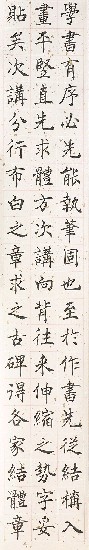 學書有序必先能執筆固也至於作書先從結構入
畫平豎直先求體方次講向背往來伸縮之勢字妥
貼矣次講分行布白之章求之古碑得各家結體章